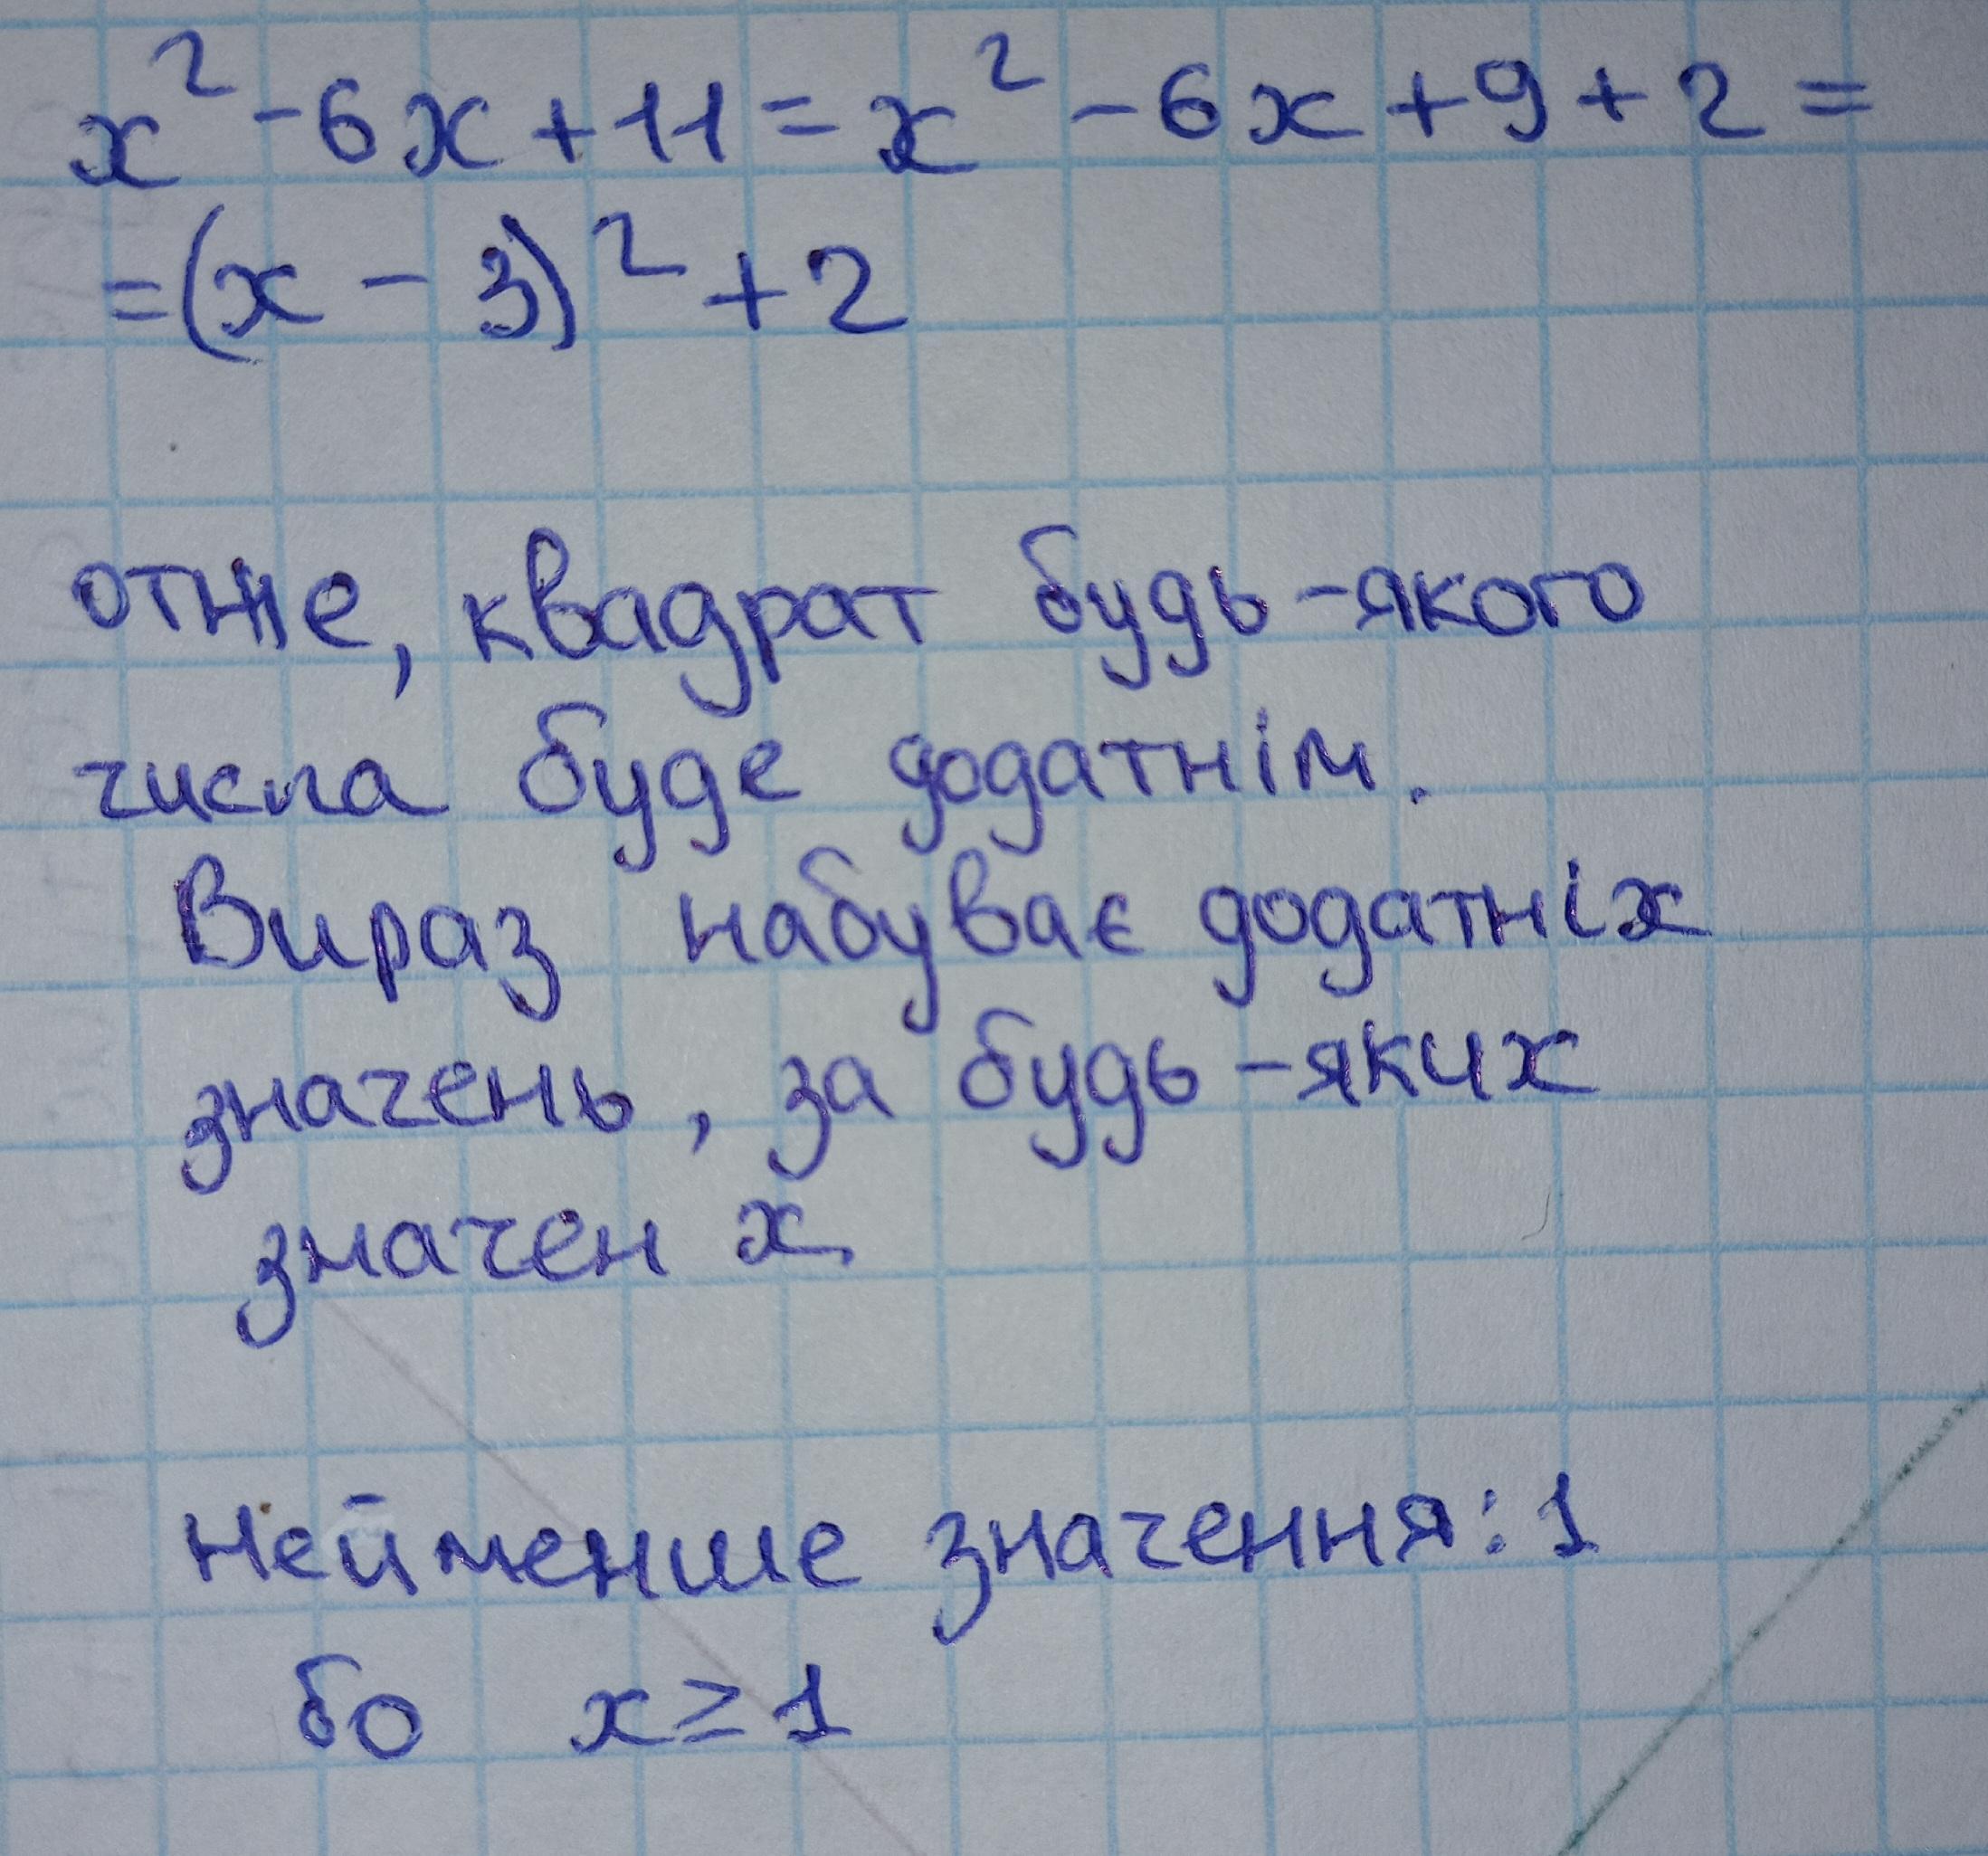 x² - 6x + 11 = x² - 6x + 9 + 2 =
= (x - 3)² + 2
отже, квадрат будь-якого
числа буде додатнім.
Вираз набуває додатніх
значень, за будь-яких
значен x
нейменше значення: 1
бо x ≥ 1